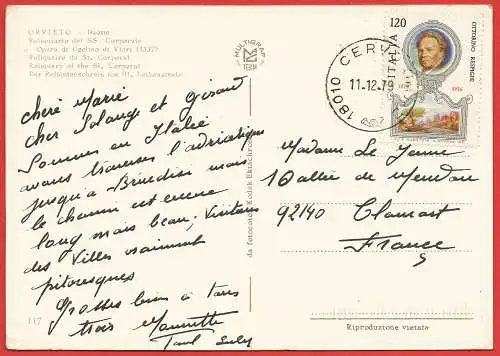 ORVIETO - Duomo
Reliquiario del SS. Corporale
Opera di Ugolino di Vieri (1337)
Reliquaire du St. Corporal
Reliquary of the St. Corporal
Der Reliquienschrein des Hl. Leibestuchs
MULTIGRAF
TERNI
chère Marie
cher Solange et Girard
Sommes en Italie
avons traversé l'adriatique
jusqu'à Brindisi mais
le chemin est encore
long mais beau, visitons
des Villes vraiment
pitoresques
Grosses bises à tous
trois Mannette
Paul
117
da fotocolor Kodak Ektachrome
120
ITALIA
OTTORINO RESPIGHI
1879
1936
18010 CERV
11.12.79
Madame Le Jeune
1 Dallée de Meudon
92140 Clamart
France
Riproduzione vietata